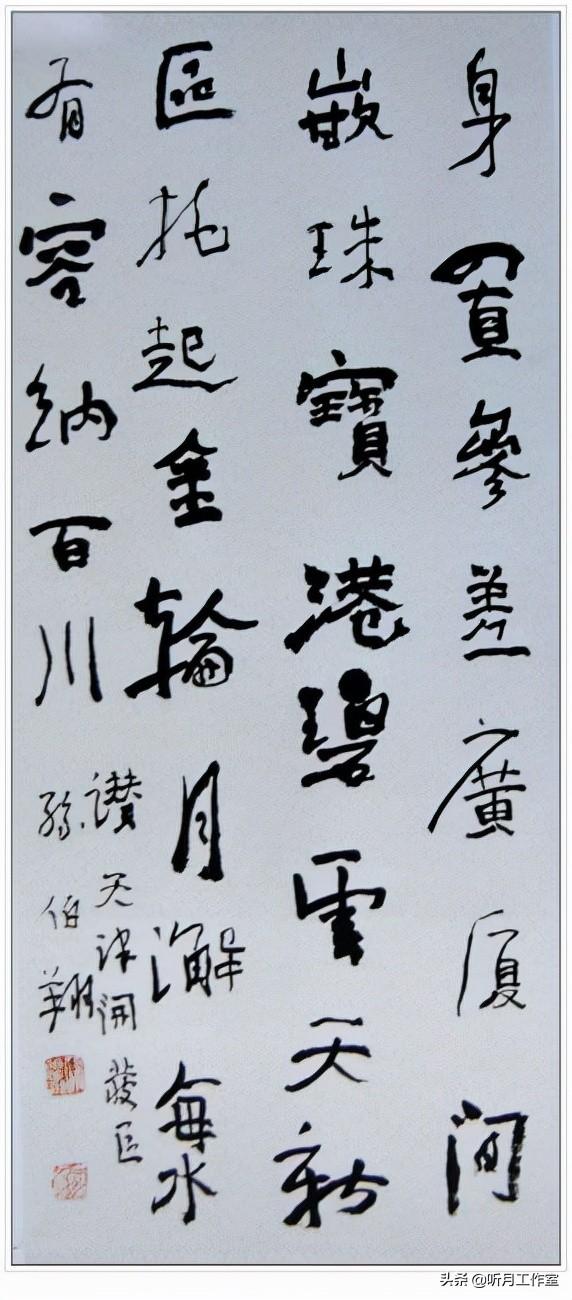 身置參差廣厦間
嵌珠寶港碧雲天新
區托起金輪月澥海
有容納百川
讚天津開發區
孫伯翔
头条 @听月工作室